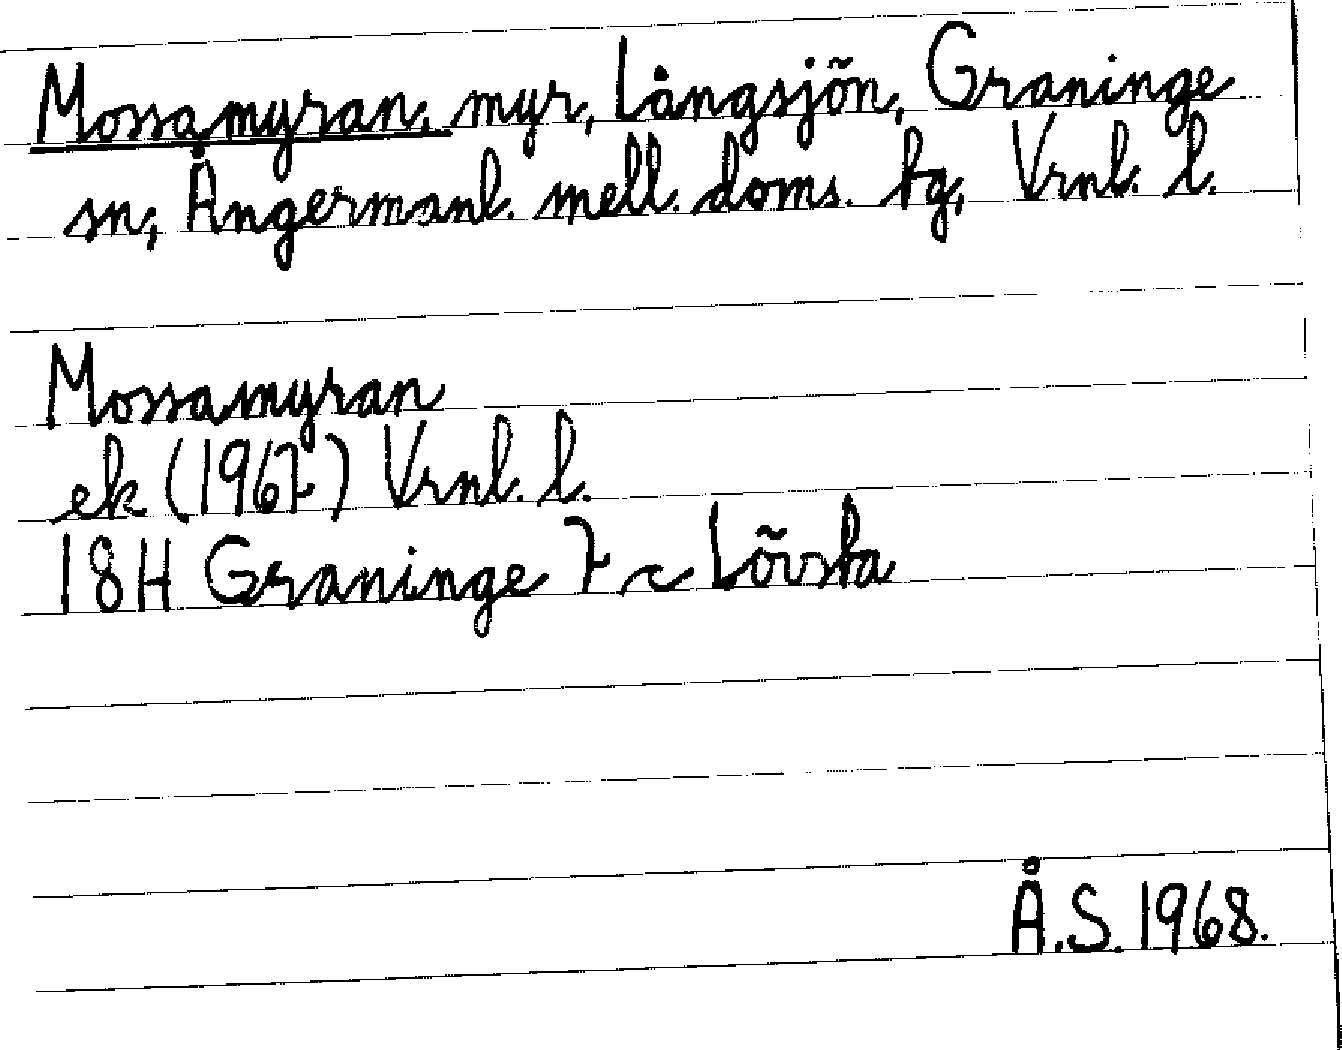 Mossamyran, myr, Långsjön, Graninge
sn, Ångermanl. mell. doms. tg, Vrnl. l.
Mossamyran
ek (1967) Vrnl. l.
18H Graninge 7 c Lövsta
Å.S. 1968.